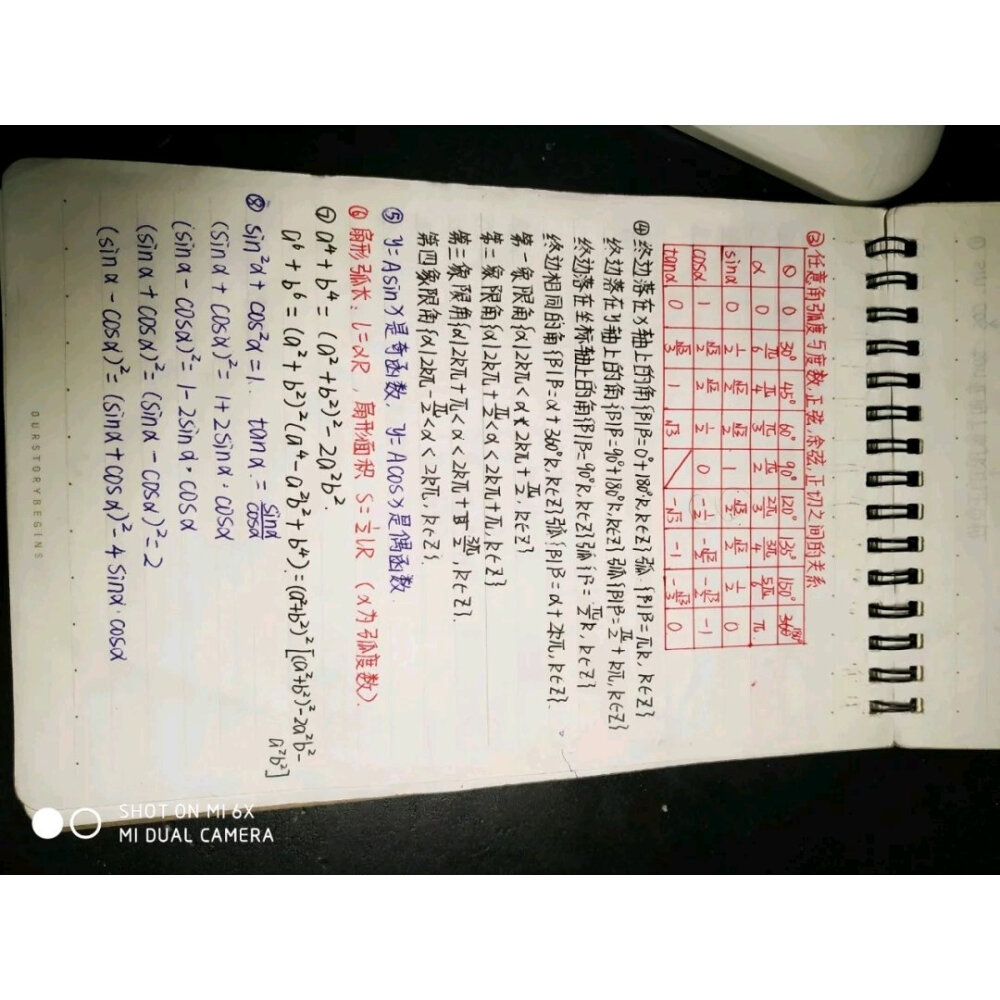 ③任意角弧度与度数,正弦,余弦,正切之间的关系
Q 0 30° 45° 60° 90° 120° 135° 150° 180°
α 0 π/6 π/4 π/3 π/2 2π/3 3π/4 5π/6 π
sinα 0 1/2 √2/2 √3/2 1 √3/2 √2/2 1/2 0
cosα 1 √3/2 √2/2 1/2 0 -1/2 -√2/2 -√3/2 -1
tanα 0 √3/3 1 √3 -√3 -1 -√3/3 0
④ 终边落在x轴上的角{β|β=0°+180°k,k∈Z}弧.{β|β=πk,k∈Z}
终边落在y轴上的角{β|β=90°+180°k,k∈Z}弧{β|β=π/2+kπ,k∈Z}
终边落在坐标轴上的角{β|β=90°k,k∈Z}弧{β=π/2k,k∈Z}
终边相同的角{β|β=α+360°k,k∈Z}弧{β|β=α+2kπ,k∈Z}.
第一象限角{α|2kπ<α<2kπ+π/2,k∈Z}
第二象限角{α|2kπ+π/2<α<2kπ+π,k∈Z}
第三象限角{α|2kπ+π<α<2kπ+3π/2,k∈Z}.
第四象限角{α|2kπ-π/2<α<2kπ,k∈Z}.
⑤ y=Asinx是奇函数, y=Acosx是偶函数.
⑥ 扇形弧长: l=αR 扇形面积 S=½lR (α为弧度数).
⑦ a⁴+b⁴=(a²+b²)²-2a²b².
a⁶+b⁶=(a²+b²)²(a⁴-a²b²+b⁴)=(a²+b²)²[(a²+b²)²-2a²b²-
a²b²]
⑧ sin²α+cos²α=1. tanα=sinα/cosα
(sinα+cosα)²=1+2sinα·cosα
(sinα-cosα)²=1-2sinα·cosα
(sinα+cosα)²=(sinα-cosα)²=2
(sinα-cosα)²=(sinα+cosα)²-4sinα·cosα
OURSTORYBEGINS
SHOT ON MI 6X
MI DUAL CAMERA